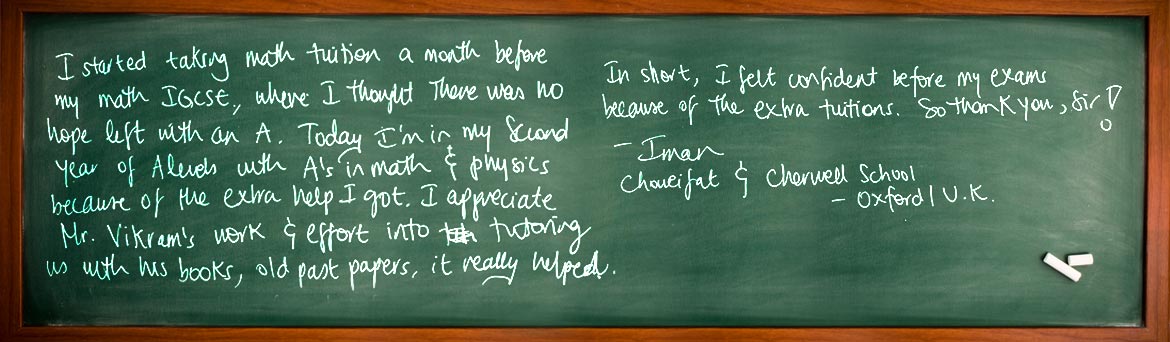 I started taking math tuition a month before
my math IGCSE, where I thought there was no
hope left with an A. Today I'm in my second
year of Alevels with A's in math & physics
because of the extra help I got. I appreciate
Mr. Vikram's work & effort into tutoring
us with his books, old past papers, it really helped.
In short, I felt confident before my exams
because of the extra tuitions. So thank you, Sir!
- Iman
Choueifat & Cherwell School
- Oxford / U.K.